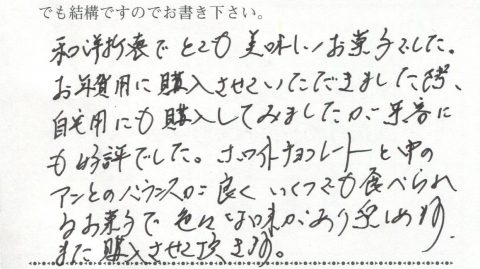 でも結構ですのでお書き下さい。
和洋折衷でとても美味しいお菓子でした。
お年賀用に購入させていただきました際、
自宅用にも購入してみましたが来客に
も好評でした。ホワイトチョコレートと中の
アンとのバランスが良くいくつでも食べられ
るお菓子で色々な味があり楽しめます。
また購入させて頂きます。